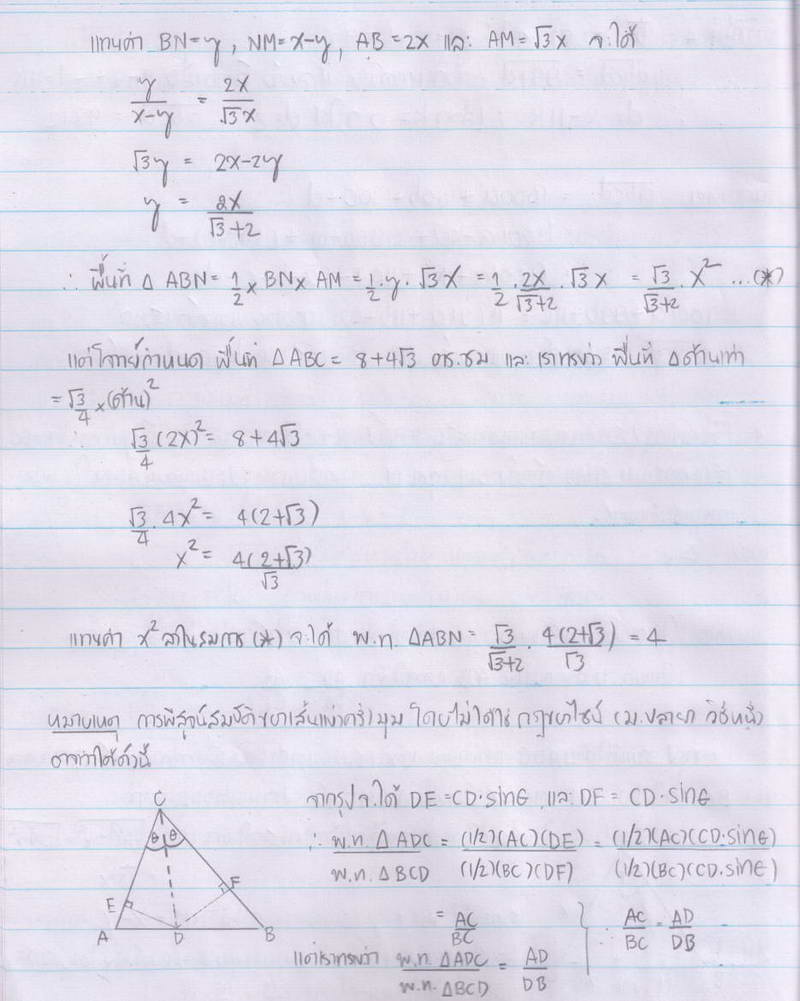 แทนค่า BN=y, NM=x-y, AB=2x และ AM=√3x จะได้
y/(x-y) = 2x/(√3x)
√3y = 2x-2y
y = 2x/(√3+2)
∴ พื้นที่ Δ ABN = 1/2 × BN × AM = 1/2 · y · √3x = 1/2 · 2x/(√3+2) · √3x = √3/(√3+2) · x² ...(*)
แต่โจทย์กำหนด พื้นที่ ΔABC = 8+4√3 ตร.ซม และเราทราบว่า พื้นที่ Δด้านเท่า
= √3/4 × (ด้าน)²
∴ √3/4 (2x)² = 8+4√3
√3/4 · 4x² = 4(2+√3)
x² = 4(2+√3)/√3
แทนค่า x² ลงในสมการ (*) จะได้ พ.ท. ΔABN = √3/(√3+2) · 4(2+√3)/√3 = 4
หมายเหตุ การพิสูจน์สมบัติของเส้นแบ่งครึ่งมุม โดยไม่ได้ใช้ กฎของไซน์ (ม.ปลาย) วิธีหนึ่ง
อาจทำได้ดังนี้
จากรูปจะได้ DE = CD·sinθ และ DF = CD·sinθ
∴ พ.ท. ΔADC / พ.ท. ΔBCD = (1/2)(AC)(DE) / (1/2)(BC)(DF) = (1/2)(AC)(CD·sinθ) / (1/2)(BC)(CD·sinθ)
= AC/BC
แต่เราทราบว่า พ.ท. ΔADC / พ.ท. ΔBCD = AD/DB
} ∴ AC/BC = AD/DB
C
θ θ
E F
A D B